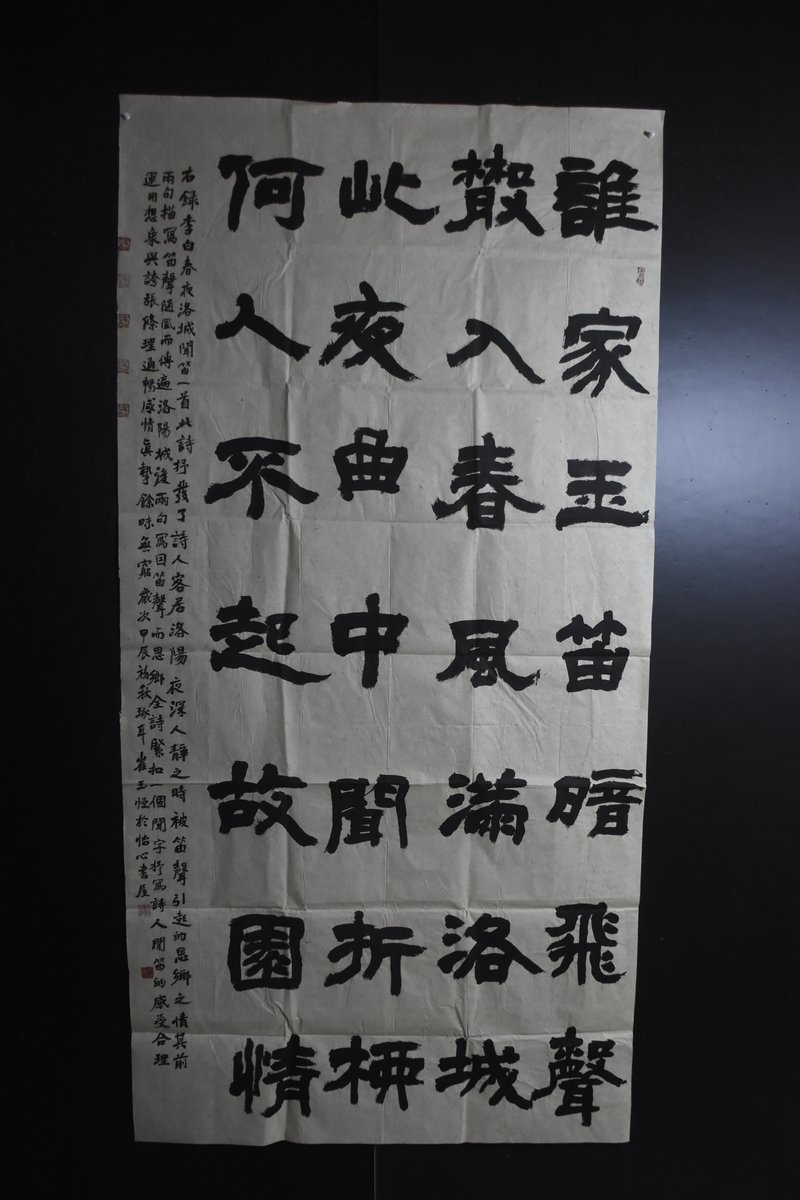 誰家玉笛暗飛聲
散入春風滿洛城
此夜曲中聞折柳
何人不起故園情
右録李白春夜洛城聞笛一首此詩抒發了詩人客居洛陽夜深人靜之時被笛聲引起的思鄉之情其前
兩句描寫笛聲隨風而傳遍洛陽城後兩句寫因笛聲而思鄉全詩緊扣一個聞字抒寫詩人聞笛的感受合理
運用想象與誇張條理通暢感情真摯餘味無窮歲次甲辰初秋琢耳崔玉恆於怡心書屋